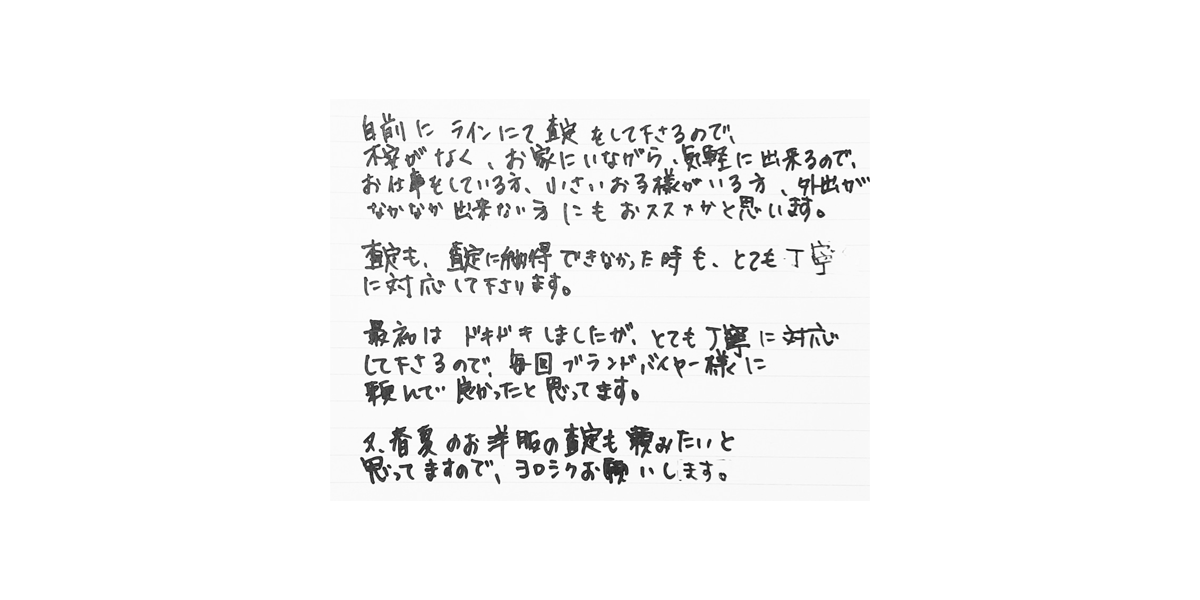 自前に ラインにて 査定 をして下さるので、
不安がなく、お家にいながら、気軽に出来るので、
お仕事をしている方、小さいお子様がいる方、外出が
なかなか出来ない方にもおススメかと思います。
査定も、査定に納得できなかった時も、とても丁寧
に対応して下さります。
最初は ドキドキしましたが、とても丁寧に対応
して下さるので、毎回ブランドバイヤー様に
頼んで良かったと思ってます。
又、春夏のお洋服の査定も頼みたいと
思ってますので、ヨロシクお願いします。